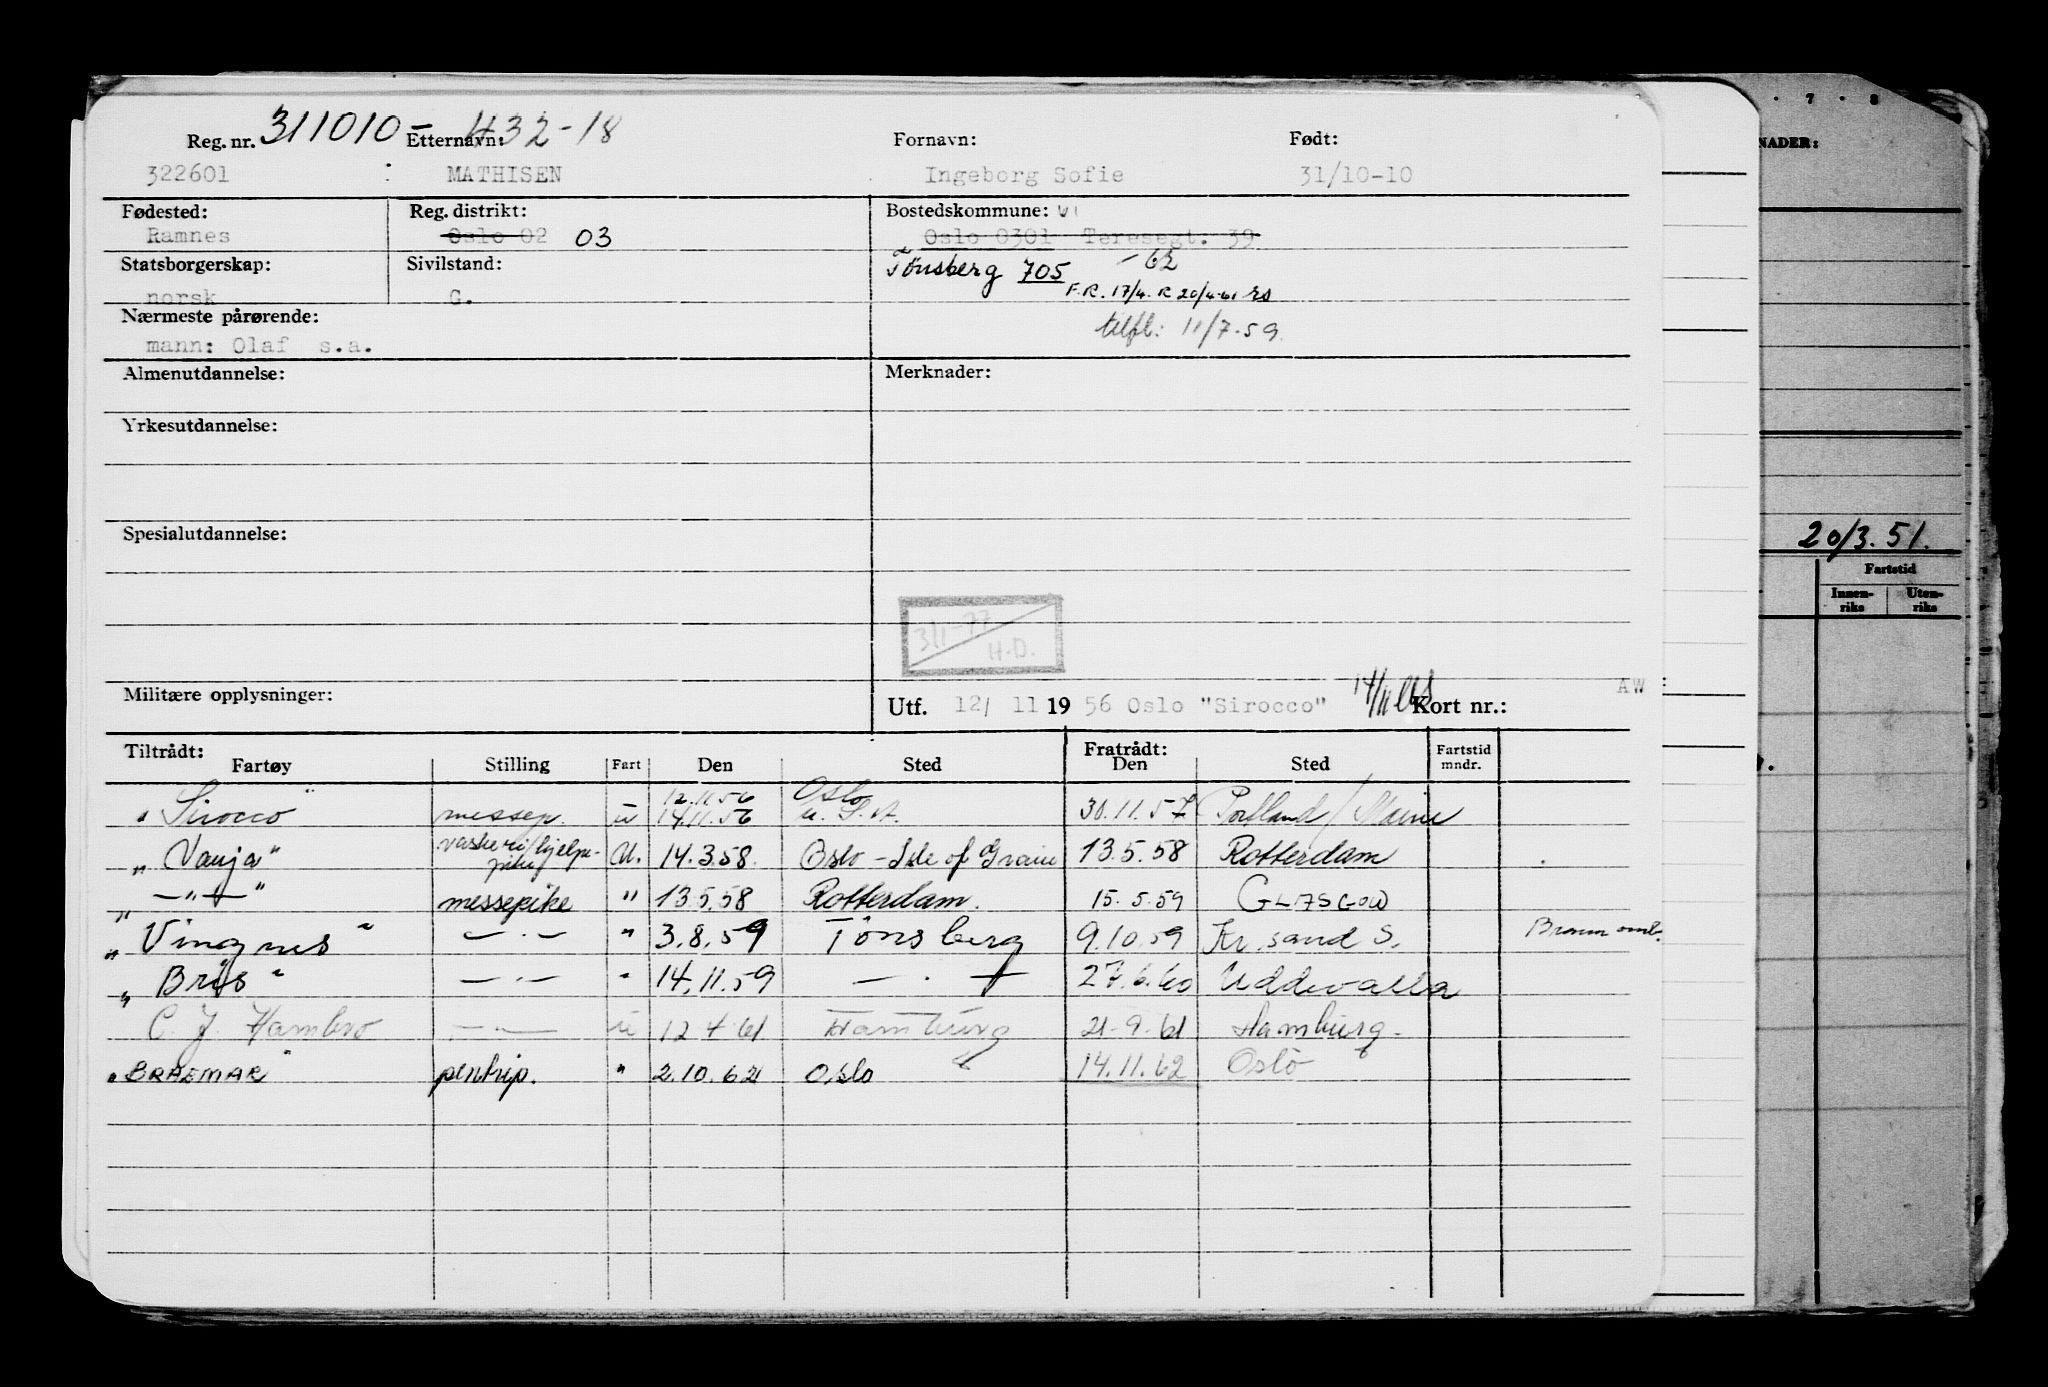 311010-432-18
Reg. nr. Etternavn: Fornavn: Født:
322601 : MATHISEN Ingeborg Sofie 31/10-10
Fødested: Reg. distrikt: Bostedskommune:
Ramnes Oslo 02 03 Oslo 0301 Teresegt. 39
Statsborgerskap: Sivilstand: Tønsberg 705 -62
norsk G. F.R. 17/4. R 20/4-61 rs
Nærmeste pårørende: tilfl: 11/7-59
mann: Olaf s.a.
Almenutdannelse: Merknader:
Yrkesutdannelse:
Spesialutdannelse:
3/1-77
H.D.
Militære opplysninger: Utf. 12/ 11 19 56 Oslo "Sirocco" 14/11 Kort nr.: AW
Tiltrådt: Fratrådt: Fartstid
Fartøy Stilling Fart Den Sted Den Sted mndr.
12.11.56 Oslo
"Sirocco" messep. u 14.11.56 U.S.A. 30.11.57 Portland/Maine
"Vanja" vaskeri/hjelpepike U. 14.3.58. Oslo - Isle of Grain 13.5.58 Rotterdam
" —"— " messepike " 13.5.58 Rotterdam. 15.5.59 GLASGOW
"Vingnes" —"— " 3.8.59 Tønsberg 9.10.59 Kr.sand S.
"Bris" —"— " 14.11.59 —"— 27.6.60 Uddevalla
C. J. Hambro —"— u 12.4.61 Hamburg 21-9-61 Hamburg.
"BRAEMAR" pentrip. " 2.10.62 Oslo 14.11.62 Oslo
7 · 8
NADER:
20/3.51.
Fartstid
Innenriks Utenriks